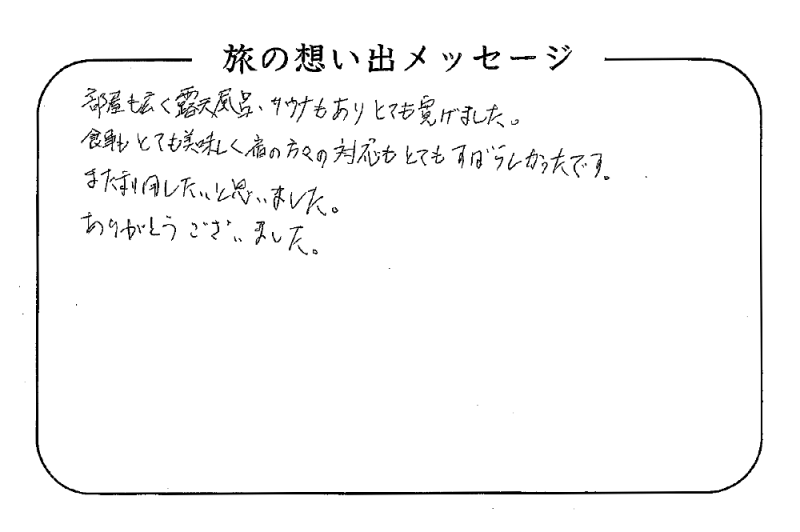 旅の想い出メッセージ
部屋も広く露天風呂、サウナもありとても寛げました。
食事もとても美味しく宿の方々の対応もとてもすばらしかったです。
また利用したいと思いました。
ありがとうございました。